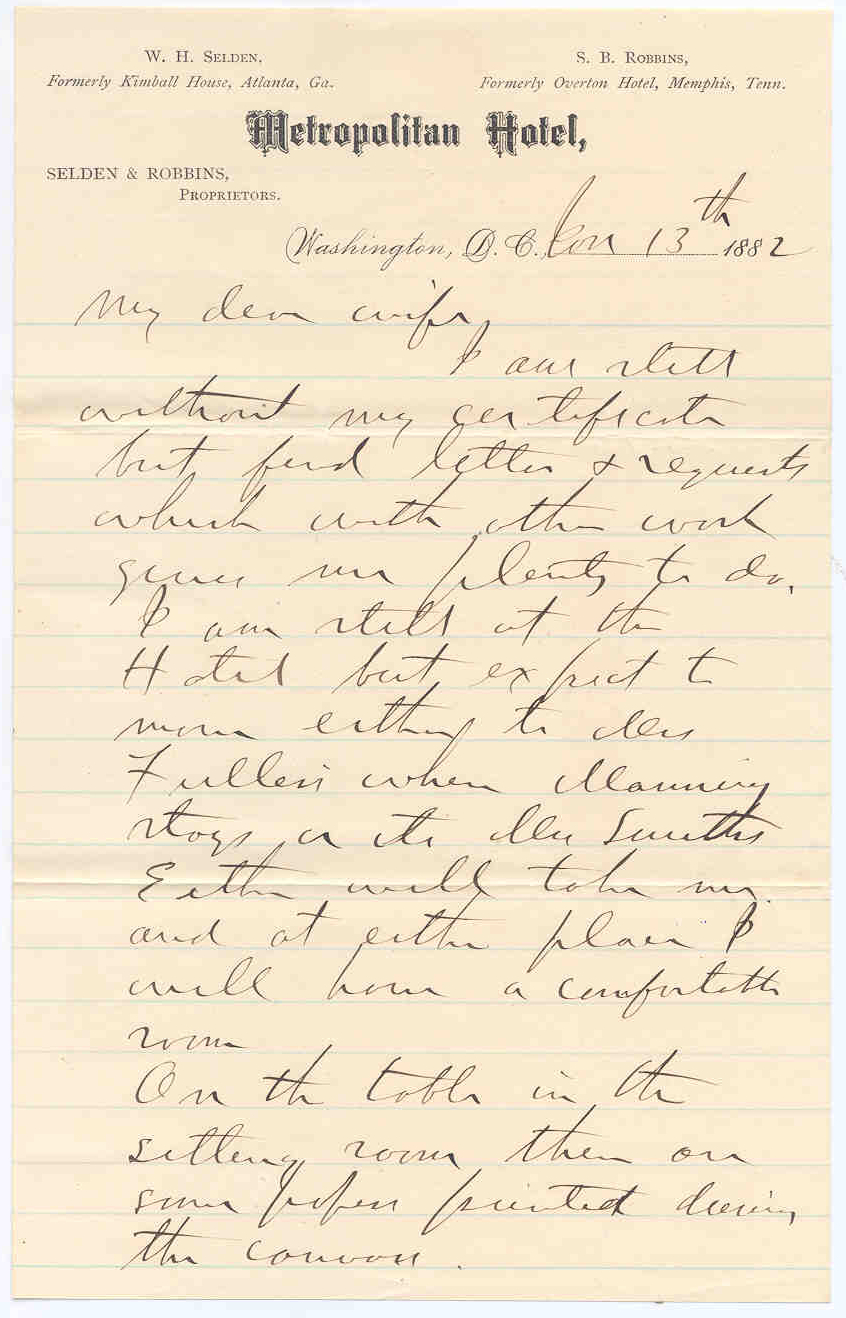 W. H. Selden,
Formerly Kimball House, Atlanta, Ga.
S. B. Robbins,
Formerly Overton Hotel, Memphis, Tenn.
Metropolitan Hotel,
SELDEN & ROBBINS,
Proprietors.
Washington, D. C., Jan 13th 1882
My dear wife,
I am still
without my certificate
but find letters & requests
which with other work
gives me plenty to do.
I am still at the
Hotel but expect to
move either to Mrs
Fullers where Manning
stays or to Mrs Smiths
Either will take me
and at either place I
will have a comfortable
room
On the table in the
sitting room there are
some papers printed during
the canvass.